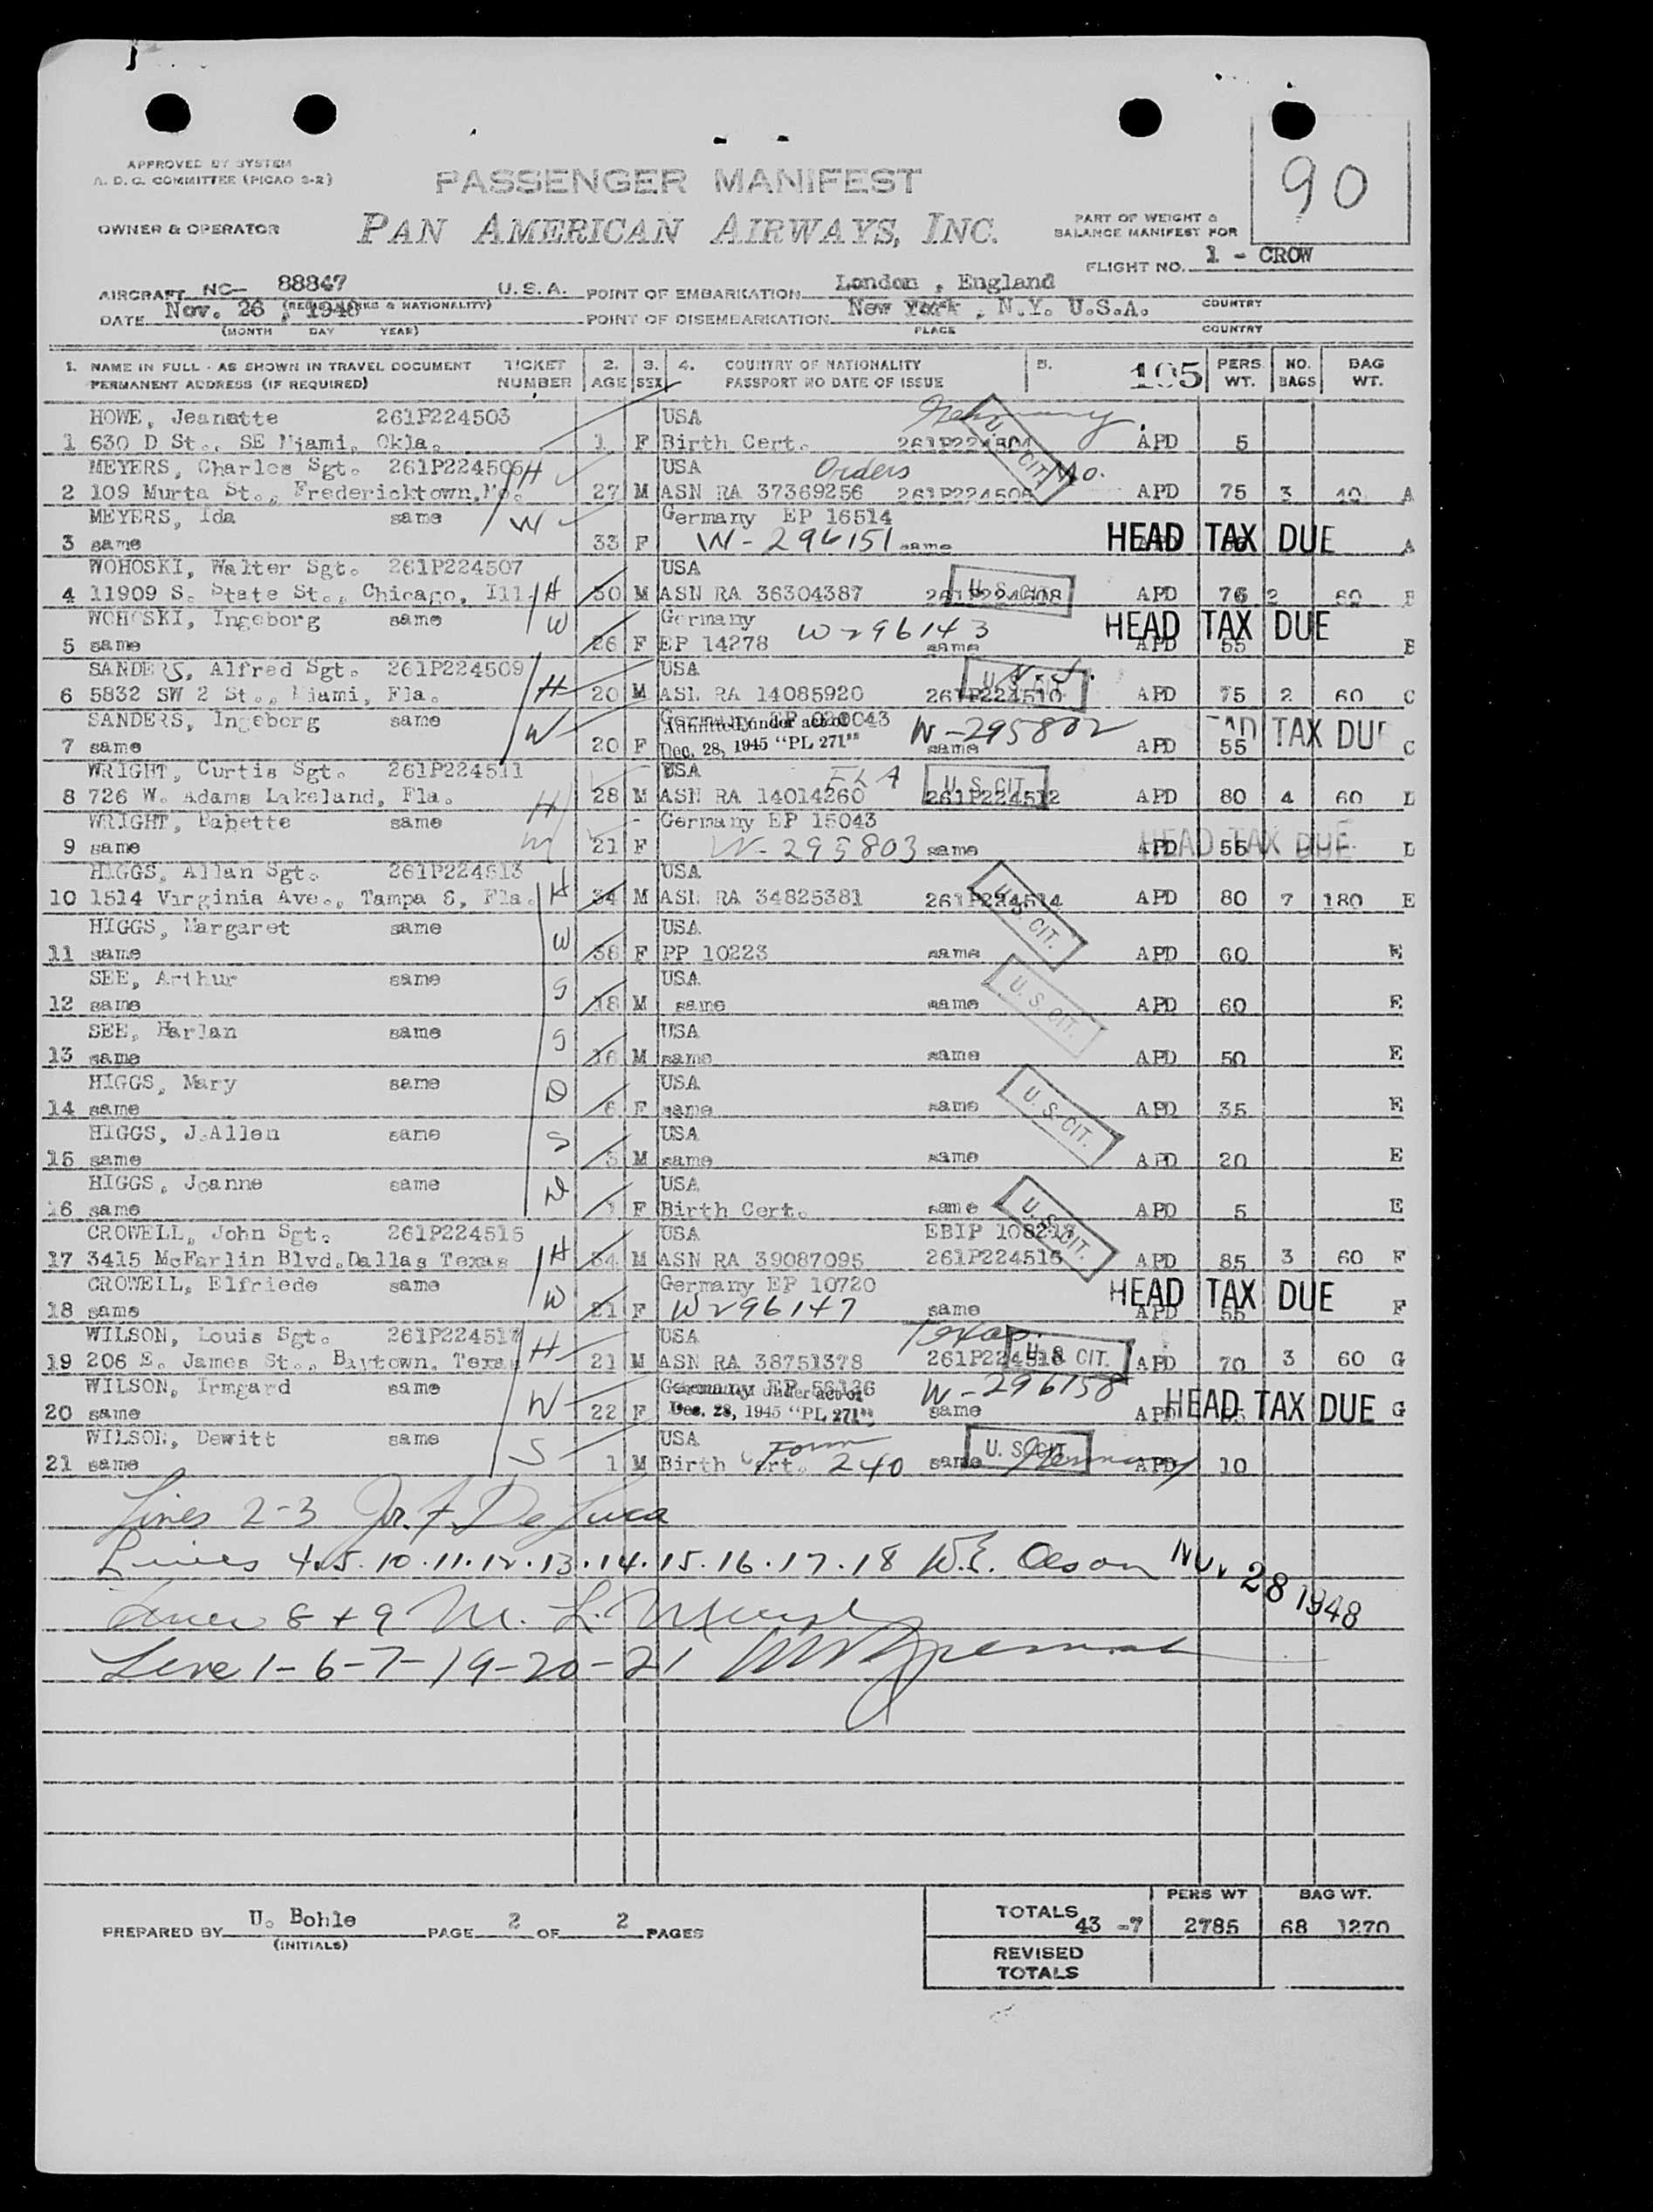 APPROVED BY SYSTEM
A. D. C. COMMITTEE (PICAO S-2)
PASSENGER MANIFEST
90
OWNER & OPERATOR
PAN AMERICAN AIRWAYS, INC.
PART OF WEIGHT &
BALANCE MANIFEST FOR
FLIGHT NO. 1 - CROW
AIRCRAFT NC- 88847 U.S.A. POINT OF EMBARKATION London , England
DATE Nov. 26 , 1948 POINT OF DISEMBARKATION New York , N.Y. U.S.A. COUNTRY
(MONTH DAY YEAR) PLACE COUNTRY
1. NAME IN FULL - AS SHOWN IN TRAVEL DOCUMENT TICKET 2. 3. 4. COUNTRY OF NATIONALITY 5. 105 PERS. NO. BAG
PERMANENT ADDRESS (IF REQUIRED) NUMBER AGE SEX PASSPORT NO DATE OF ISSUE WT. BAGS WT.
HOWE, Jeanette 261P224503 USA Germany
1 630 D St., SE Miami, Okla. 1 F Birth Cert. 261P224504 U.S. CIT. APD 5
MEYERS, Charles Sgt. 261P224505 H USA Orders Mo.
2 109 Murta St., Fredericktown, Mo. 27 M ASN RA 37369256 261P224506 APD 75 3 40 A
MEYERS, Ida same W Germany EP 16514
3 same 33 F W-296151 same HEAD TAX DUE A
WOHOSKI, Walter Sgt. 261P224507 USA
4 11909 S. State St., Chicago, Ill. H 30 M ASN RA 36304387 261P224508 U.S. CIT. APD 75 2 60 B
WOHOSKI, Ingeborg same W Germany W296143 HEAD TAX DUE
5 same 26 F EP 14278 same APD 55 B
SANDERS, Alfred Sgt. 261P224509 USA N.J.
6 5832 SW 2 St., Miami, Fla. H 20 M ASN RA 14085920 261P224510 U.S. CIT. APD 75 2 60 C
SANDERS, Ingeborg same W Germany Admitted under act of W-295802 HEAD TAX DUE
7 same 20 F Dec. 28, 1945 "PL 271" same APD 55 C
WRIGHT, Curtis Sgt. 261P224511 USA FLA
8 726 W. Adams Lakeland, Fla. H 28 M ASN RA 14014260 261P224512 U.S. CIT. APD 80 4 60 D
WRIGHT, Babette same Germany EP 15043
9 same W 21 F W-295803 same APD 55 HEAD TAX DUE D
HIGGS, Allan Sgt. 261P224513 USA
10 1514 Virginia Ave., Tampa 6, Fla. H 34 M ASN RA 34825381 261P224514 U.S. CIT. APD 80 7 180 E
HIGGS, Margaret same W USA
11 same 36 F PP 10223 same APD 60 E
SEE, Arthur same S USA
12 same 18 M same same U.S. CIT. APD 60 E
SEE, Harlan same S USA
13 same 16 M same same APD 50 E
HIGGS, Mary same D USA
14 same 6 F same same U.S. CIT. APD 35 E
HIGGS, J.Allen same S USA
15 same 3 M same same APD 20 E
HIGGS, Joanne same D USA
16 same 1 F Birth Cert. same U.S. CIT. APD 5 E
CROWELL, John Sgt. 261P224515 USA EBIP
17 3415 McFarlin Blvd.Dallas Texas H 34 M ASN RA 39087095 261P224516 APD 85 3 60 F
CROWELL, Elfriede same W Germany EP 10720 HEAD TAX DUE
18 same 21 F W296147 same APD 55 F
WILSON, Louis Sgt. 261P224517 H USA Texas.
19 206 E. James St., Baytown, Texas 21 M ASN RA 38751378 261P224518 U.S. CIT. APD 70 3 60 G
WILSON, Irmgard same W Germany under act of W-296158
20 same 22 F Dec. 28, 1945 "PL 271" same APD HEAD TAX DUE G
WILSON, Dewitt same S USA Form U.S. CIT. Germany
21 same 1 M Birth Cert. 240 same APD 10
Lines 2-3 Jos. F. De Luca
Lines 4.5.10.11.12.13.14.15.16.17.18 W.E. Olson NOV 28 1948
Lines 8 + 9 M. L.
Line 1-6-7-19-20-21
PREPARED BY U. Bohle PAGE 2 OF 2 PAGES
(INITIALS)
PERS WT BAG WT.
TOTALS 43 -7 2785 68 1270
REVISED
TOTALS